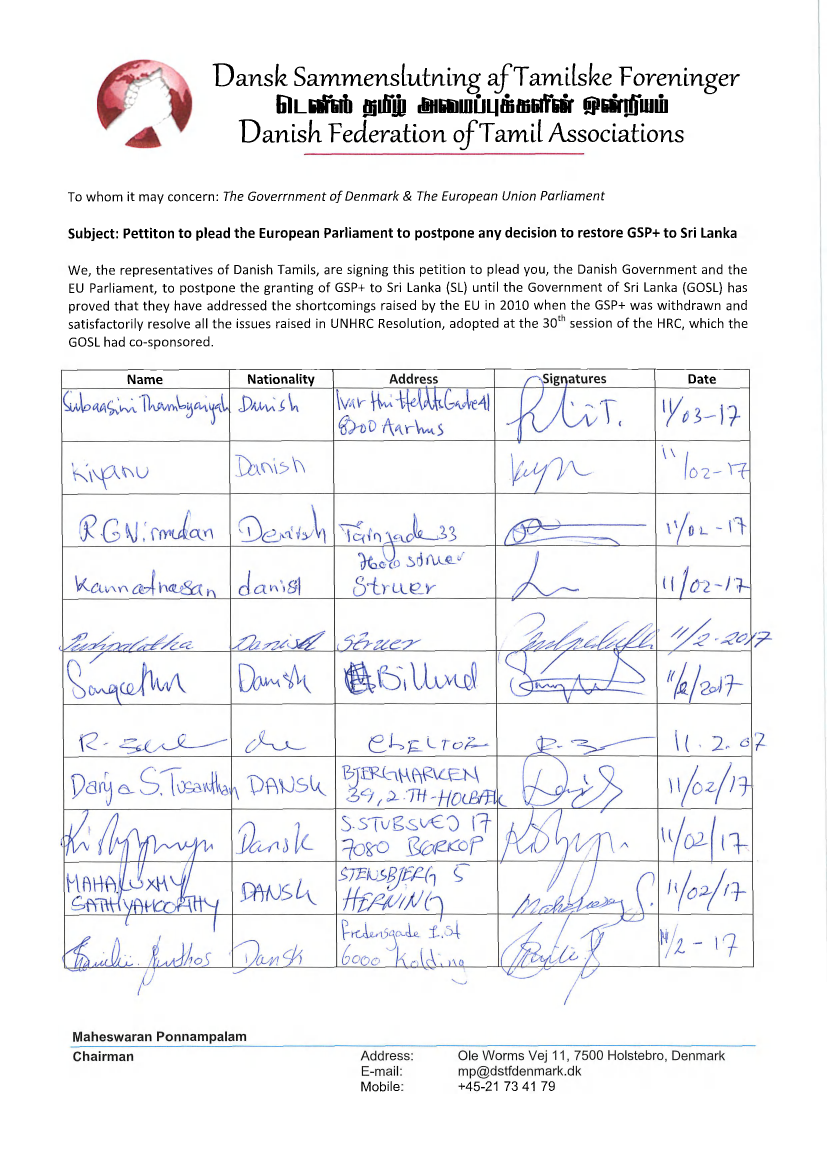 Dansk Sammenslutning af Tamilske Foreninger
டெனிஸ் தமிழ் அமைப்புக்களின் ஒன்றியம்
Danish Federation of Tamil Associations
To whom it may concern: The Goverrnment of Denmark & The European Union Parliament
Subject: Pettiton to plead the European Parliament to postpone any decision to restore GSP+ to Sri Lanka
We, the representatives of Danish Tamils, are signing this petition to plead you, the Danish Government and the
EU Parliament, to postpone the granting of GSP+ to Sri Lanka (SL) until the Government of Sri Lanka (GOSL) has
proved that they have addressed the shortcomings raised by the EU in 2010 when the GSP+ was withdrawn and
satisfactorily resolve all the issues raised in UNHRC Resolution, adopted at the 30th session of the HRC, which the
GOSL had co-sponsored.
Name Nationality Address Signatures Date
Subaasini Thambyaiyah Danish Ivar Huitfeldts Gade 41 11/03-17
8200 Aarhus
Kiyanu Danish 11/02-17
R.G Nirmudan 33 11/02-17
7600 struer
Kannathasan danish Struer 11/02-17
Pushpalatha Danish Struer 11/2-2017
Danish Billund 11/2/2017
11.2.07
Darja S. Tusanthan DANSK BJERGMARKEN 11/02/17
39, 2.TH-HOLBÆK
Dansk S.STUBSVEJ 17 11/02/17
7080 BØRKOP
MAHALUXMY DANSK STENSBJERG 5 11/02/17
SATHYAMOORTHY HERNING
Dansk Fredensgade 1.st 11/2-17
6000 Kolding
Maheswaran Ponnampalam
Chairman Address: Ole Worms Vej 11, 7500 Holstebro, Denmark
E-mail: mp@dstfdenmark.dk
Mobile: +45-21 73 41 79